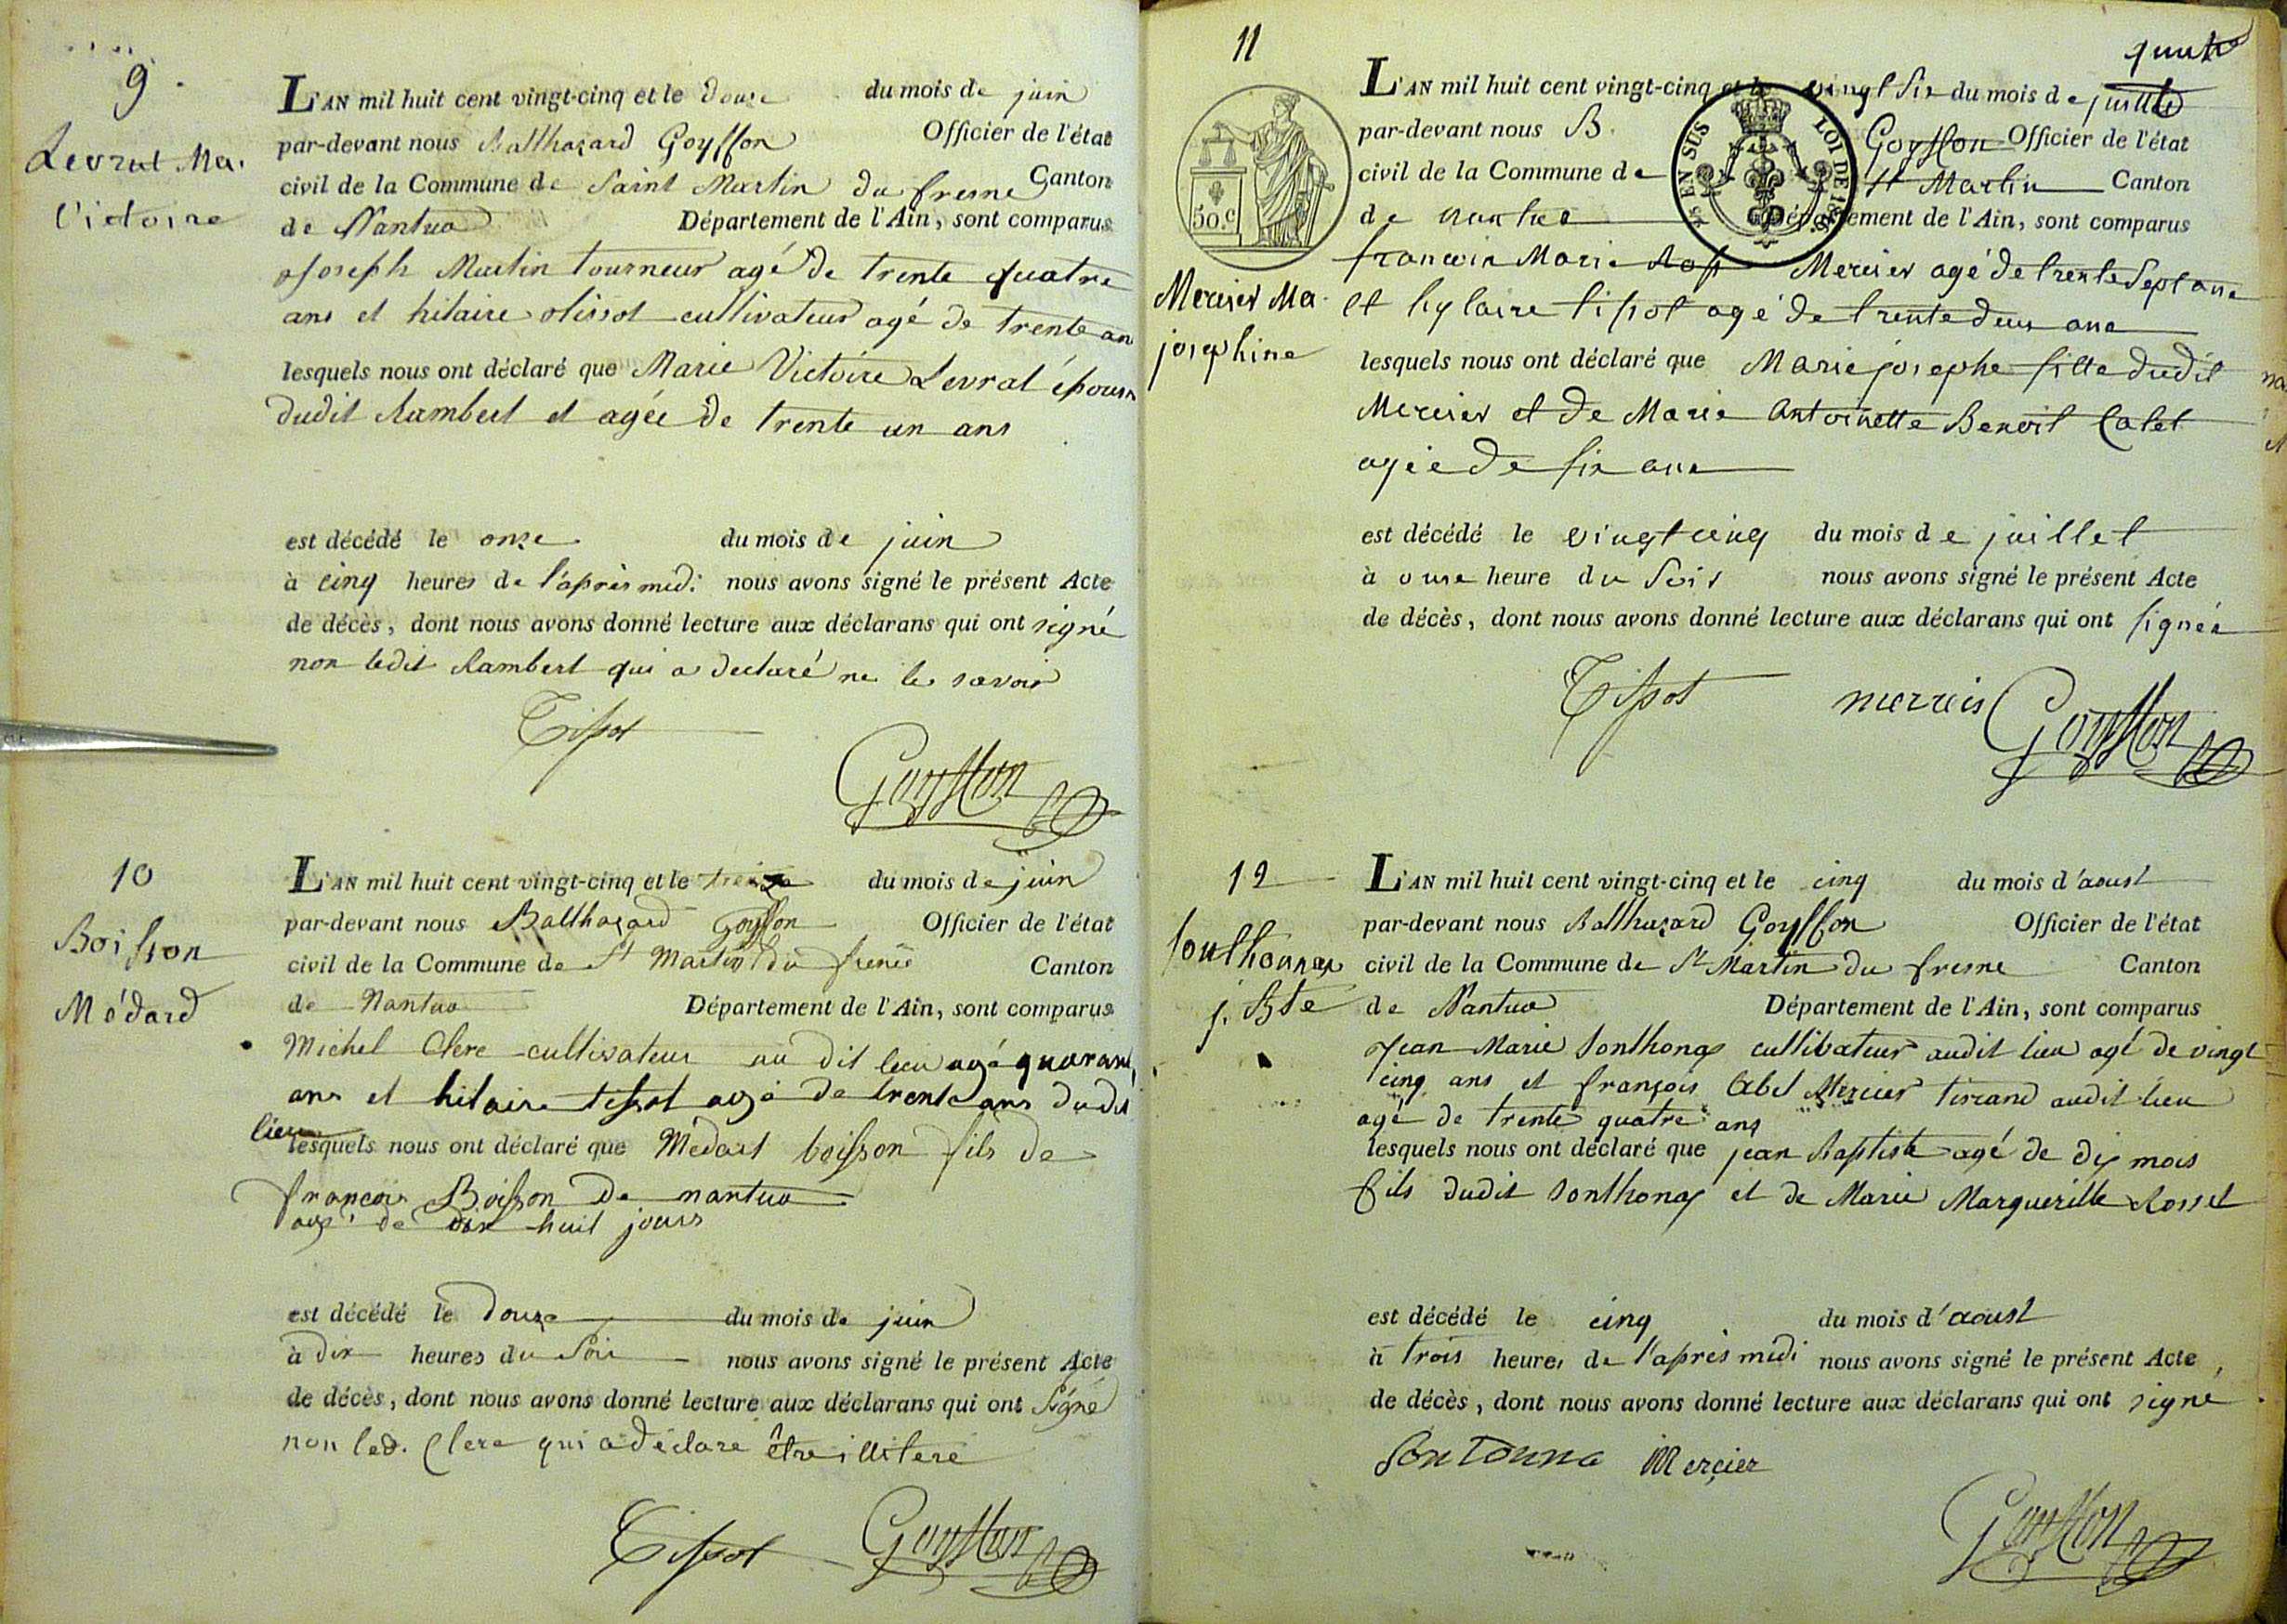 9
Levrat Ma.
Victoire
L'AN mil huit cent vingt-cinq et le douze du mois de juin
par-devant nous Balthazard Goyffon Officier de l'état
civil de la Commune de Saint Martin du fresne Canton
de Nantua Département de l'Ain, sont comparus
Joseph Martin tourneur agé de trente quatre
ans et hilaire tissot cultivateur agé de trente an
lesquels nous ont déclaré que Marie Victoire Levrat épouse
dudit Rambert et agée de trente un ans
est décédé le onze du mois de juin
à cinq heures de l'après midi nous avons signé le présent Acte
de décès, dont nous avons donné lecture aux déclarans qui ont signé
non ledit Rambert qui a declaré ne le savoir
Tissot
Goyffon
10
Boisson
Médard
L'AN mil huit cent vingt-cinq et le treize du mois de juin
par-devant nous Balthazard Goyffon Officier de l'état
civil de la Commune de St Martin du frene Canton
de Nantua Département de l'Ain, sont comparus
Michel Clerc cultivateur au dit lieu agé quarante
ans et hilaire tissot agé de trente ans dudit
lieu
lesquels nous ont déclaré que Médart boisson fils de
francois Boisson de nantua
agé de dix huit jours
est décédé le douze du mois de juin
à dix heures du Soir nous avons signé le présent Acte
de décès, dont nous avons donné lecture aux déclarans qui ont Signé
non led. Clerc qui a déclaré être illitere
Tissot Goyffon
11
quatre
L'AN mil huit cent vingt-cinq et le vingt Six du mois de juillet
par-devant nous B. Goyffon Officier de l'état
civil de la Commune de St Martin Canton
de nantua Département de l'Ain, sont comparus
50.c
EN SUS
LOI DE
Mercier Ma.
josephine
francois Marie Mercier agé de trente Sept ans
et hylaire tissot agé de trente deux ans
lesquels nous ont déclaré que Marie josephe fille dudit
Mercier et de Marie Antoinette Benoit Catet
agée de six ans
est décédé le vingt cinq du mois de juillet
à onze heure du Soir nous avons signé le présent Acte
de décès, dont nous avons donné lecture aux déclarans qui ont signée
Tissot mercier Goyffon
12
Sonthonax
j. Bte
L'AN mil huit cent vingt-cinq et le cinq du mois d'aoust
par-devant nous Balthazard Goyffon Officier de l'état
civil de la Commune de St Martin du fresne Canton
de Nantua Département de l'Ain, sont comparus
Jean Marie Sonthonax cultivateur audit lieu agé de vingt
cinq ans et françois Abel Mercier tisserand audit lieu
agé de trente quatre ans
lesquels nous ont déclaré que jean Baptiste agé de dix mois
fils dudit Sonthonax et de Marie Marguerite Rosset
est décédé le cinq du mois d'aoust
à trois heures de l'après midi nous avons signé le présent Acte
de décès, dont nous avons donné lecture aux déclarans qui ont signé
Sontonna Mercier
Goyffon